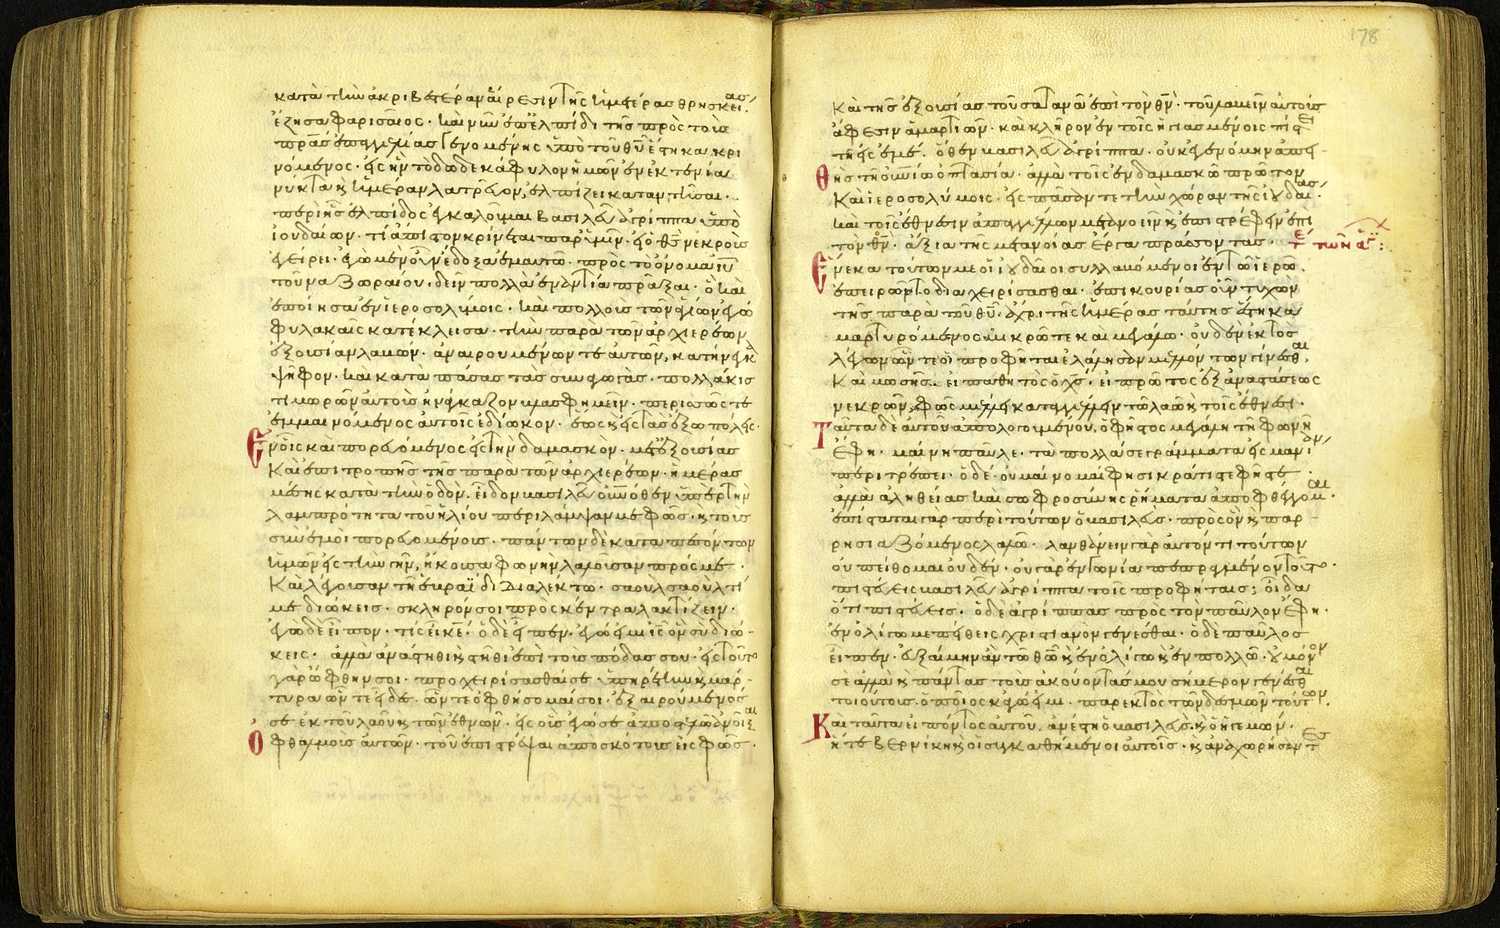 κατὰ τὴν ἀκριβεστέραν αἵρεσιν τῆς ἡμετέρας θρησκείας
ἔζησα φαρισαῖος· καὶ νῦν ἐπ' ἐλπίδι τῆς πρὸς τοὺς
πρας ἐπαγγελίας γενομένης ὑπὸ τοῦ θυ ἕστηκα κρι
νόμενος· εἰς ἣν τὸ δωδεκάφυλον ἡμῶν ἐν ἐκτενία
νύκτα καὶ ἡμέραν λατρεῦον, ἐλπίζει καταντῆσαι·
περὶ ἧς ἐλπίδος ἐγκαλοῦμαι βασιλεῦ ἀγρίππα ὑπὸ
ἰουδαίων· τί ἄπιστον κρίνεται παρ' ὑμῖν· εἰ ὁ θς νεκροὺς
ἐγείρει· ἐγὼ μὲν οὖν ἔδοξα ἐμαυτῶ· πρὸς τὸ ὄνομα ιυ
τοῦ ναζωραίου, δεῖν πολλὰ ἐναντία πρᾶξαι· ὃ καὶ
ἐποίησα ἐν ἱεροσολύμοις· καὶ πολλοὺς τῶν ἁγίων ἐγὼ
φυλακαῖς κατέκλεισα· τὴν παρὰ τῶν ἀρχιερέων
ἐξουσίαν λαβών· ἀναιρουμένων τε αὐτῶν, κατήνεγκα
ψῆφον· καὶ κατὰ πάσας τὰς συναγωγάς· πολλάκις
τιμωρῶν αὐτοὺς ἠνάγκαζον βλασφημεῖν· περισσῶς τε
ἐμμαινόμενος αὐτοῖς ἐδίωκον· ἕως καὶ εἰς τὰς ἔξω πόλεις·
Ἐν οἷς καὶ πορευόμενος εἰς τὴν δαμασκὸν· μετ' ἐξουσίας
καὶ ἐπιτροπῆς τῆς παρὰ τῶν ἀρχιερέων· ἡμέρας
μέσης κατὰ τὴν ὁδὸν· εἶδον βασιλεῦ οὐνόθεν ὑπὲρ τὴν
λαμπρότητα τοῦ ἡλίου περιλάμψαν με φῶς· καὶ τοὺς
σὺν ἐμοὶ πορευομένους· πάντων δὲ καταπεσόντων
ἡμῶν εἰς τὴν γῆν, ἤκουσα φωνὴν λαλοῦσαν πρός με·
καὶ λέγουσαν τῆ ἑβραΐδι διαλέκτω· σαοὺλ σαοὺλ τί
με διώκεις· σκληρόν σοι πρὸς κέντρα λακτίζειν·
ἐγὼ δὲ εἶπον· τίς εἶ κε· ὁ δὲ εἶπεν· ἐγώ εἰμι ις ὃν σὺ διώ-
κεις· ἀλλὰ ἀνάστηθι καὶ στῆθι ἐπὶ τοὺς πόδας σου· εἰς τοῦτο
γὰρ ὤφθην σοι· προχειρίσασθαί σε ὑπηρέτην καὶ μάρ-
τυρα ὧν τε εἶδες· ὧν τε ὀφθήσομαί σοι· ἐξαιρούμενός
σε ἐκ τοῦ λαοῦ καὶ τῶν ἐθνῶν· εἰς οὓς ἐγώ σε ἀποστέλλω ἀνοῖξαι
Ὀφθαλμοὺς αὐτῶν· τοῦ ἐπιστρέψαι ἀπὸ σκότους εἰς φῶς·
178
καὶ τῆς ἐξουσίας τοῦ σατανᾶ ἐπὶ τὸν θν· τοῦ λαβεῖν αὐτοὺς
ἄφεσιν ἁμαρτιῶν· καὶ κλῆρον ἐν τοῖς ἡγιασμένοις πίστει
τῆ εἰς ἐμέ· ὅθεν βασιλεῦ ἀγρίππα· οὐκ ἐγενόμην ἀπει-
θὴς τῆ οὐνίω ὀπτασία· ἀλλὰ τοῖς ἐν δαμασκῶ πρῶτον
καὶ ἱεροσολύμοις· εἰς πᾶσάν τε τὴν χώραν τῆς ἰουδαίας·
καὶ τοῖς ἔθνεσιν ἀπαγγέλλων μετανοεῖν καὶ ἐπιστρέφειν ἐπὶ
τὸν θν· ἄξια τῆς μετανοίας ἔργα πράσσοντας·
Ἕνεκα τούτων με οἱ ἰουδαῖοι συλλαβόμενοι ἐν τῶ ἱερῶ·
ἐπειρῶντο διαχειρίσασθαι· ἐπικουρίας οὖν τυχὼν
τῆς παρὰ τοῦ θυ· ἄχρι τῆς ἡμέρας ταύτης ἕστηκα
μαρτυρόμενος μικρῶ τε καὶ μεγάλω· οὐδὲν ἐκτὸς
λέγων ὧν τε οἱ προφῆται ἐλάλησαν μελλόντων γίνεσθαι·
καὶ μωσῆς· εἰ παθητὸς ὁ χς· εἰ πρῶτος ἐξ ἀναστάσεως
νεκρῶν, φῶς μέλλει καταγγέλλειν τῶ λαῶ καὶ τοῖς ἔθνεσι·
Ταῦτα δὲ αὐτοῦ ἀπολογουμένου, ὁ φῆστος μεγάλη τῆ φωνῆ
ἔφη· μαίνη παῦλε· τὰ πολλά σε γράμματα εἰς μανίαν
περιτρέπει· ὁ δέ· οὐ μαίνομαί φησι κράτιστε φῆστε·
ἀλλὰ ἀληθείας καὶ σωφροσύνης ῥήματα ἀποφθέγγομαι·
ἐπίσταται γὰρ περὶ τούτων ὁ βασιλεύς· πρὸς ὃν καὶ παρ-
ρησιαζόμενος λαλῶ· λανθάνειν γὰρ αὐτόν τι τούτων
οὐ πείθομαι οὐδέν· οὐ γάρ ἐν γωνία πεπραγμένον τοῦτο·
πιστεύεις βασιλεῦ ἀγρίππα τοῖς προφήταις; οἶδα
ὅτι πιστεύεις· ὁ δὲ ἀγρίππας πρὸς τὸν παῦλον ἔφη·
ἐν ὀλίγω με πείθεις χριστιανὸν γενέσθαι· ὁ δὲ παῦλος
εἶπεν· εὐξαίμην ἂν τῶ θεῶ καὶ ἐν ὀλίγω καὶ ἐν πολλῶ· οὐ μόνον
σὲ ἀλλὰ καὶ πάντας τοὺς ἀκούοντάς μου σήμερον γενέσθαι
τοιούτους ὁποῖος κἀγώ εἰμι· παρεκτὸς τῶν δεσμῶν τούτων·
Καὶ ταῦτα εἰπόντος αὐτοῦ, ἀνέστη ὁ βασιλεὺς καὶ ὁ ἡγεμών·
ἥ τε βερνίκη καὶ οἱ συγκαθήμενοι αὐτοῖς· καὶ ἀναχωρήσαντες